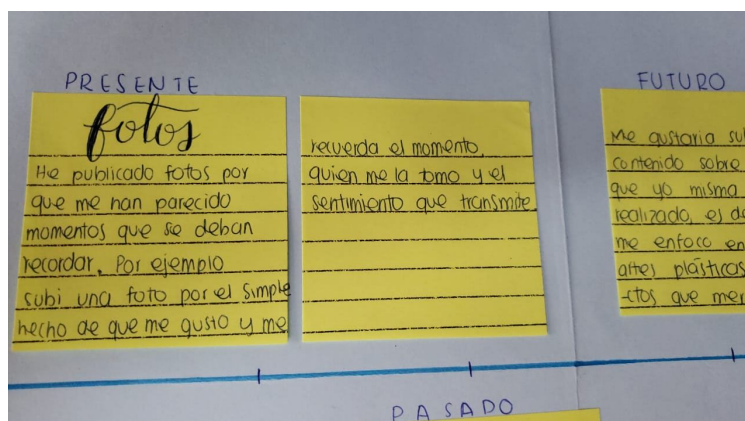 PRESENTE
fotos
He publicado fotos por
que me han parecido
momentos que se deban
recordar. Por ejemplo
subi una foto por el simple
hecho de que me gusto y me
recuerda el momento,
quien me la tomo y el
sentimiento que transmite.
FUTURO
Me gustaria
contenido sobre
que yo misma
realizado, es
me enfoco en
artes plásticas
que
PASADO